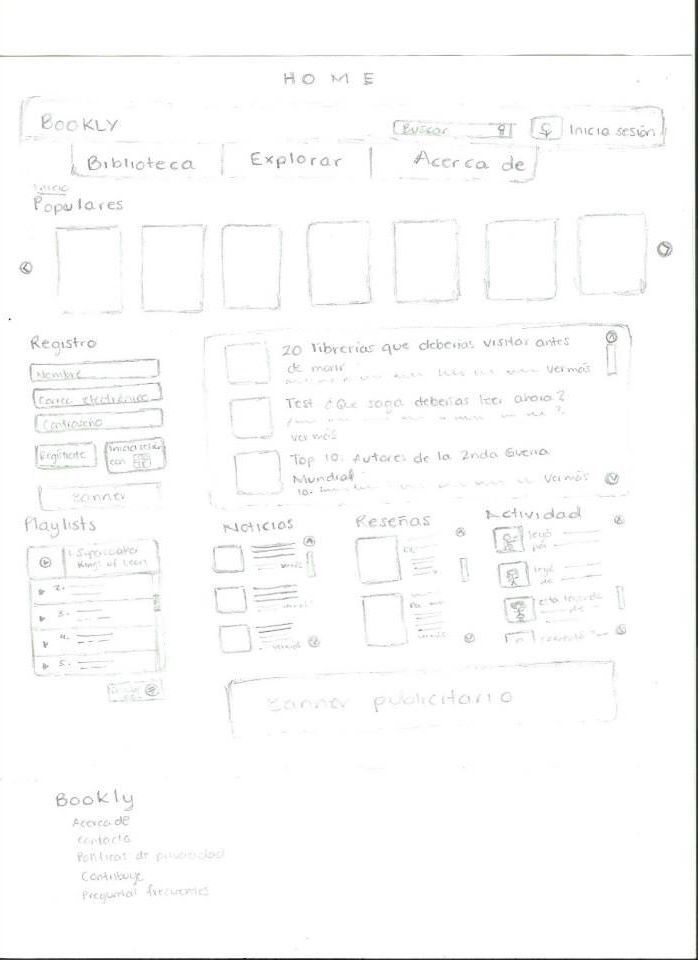 HOME
BOOKLY
Buscar
Inicia sesión
Biblioteca
Explorar
Acerca de
Inicio
Populares
Registro
Nombre
Correo electrónico
Contraseña
Regístrate
Inicia sesión
con
Banner
20 librerías que deberías visitar antes
de morir
ver más
Test ¿Qué saga deberías leer ahora?
ver más
Top 10: Autores de la 2nda Guerra
Mundial
10.
ver más
Playlists
1. Supersoaker
Kings of Leon
2.
3.
4.
5.
Noticias
Reseñas
Actividad
leyó
por
leyó
de
de
Banner publicitario
Bookly
Acerca de
Contacto
Políticas de privacidad
Contribuye
Preguntas frecuentes